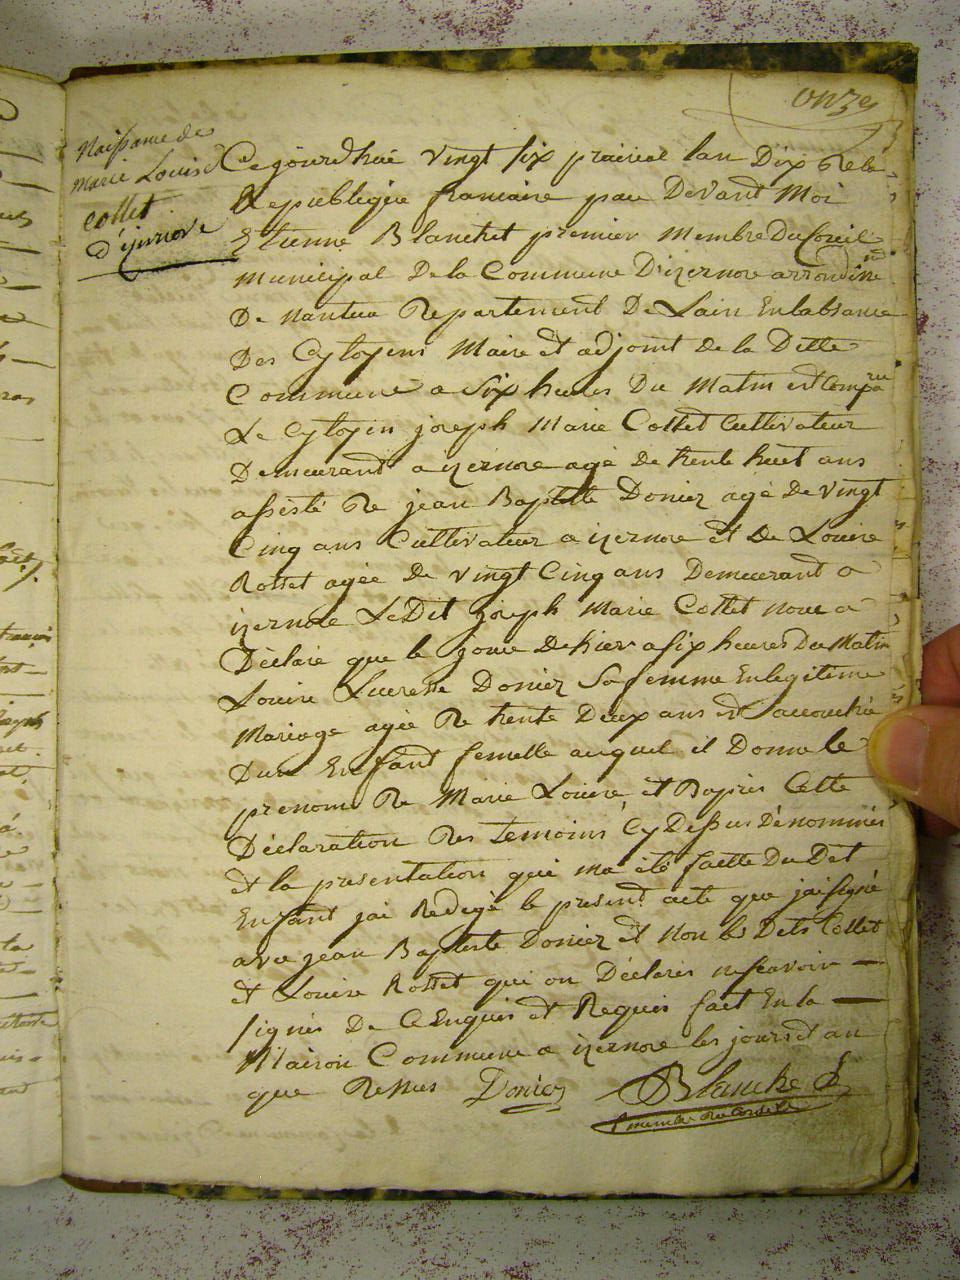 onze
Naissance de
Marie Louise
Collet
d'izernore
Cejourdhui vingt six prairial lan Dix Dela
Republique francaise par Devant Moi
Etienne Blanchet premier Membre Du Coseil
Municipal De la Commune D'izernore arrondisse
De nantua Departement De Lain En labsance
Des Cytoyens Maire et adjoint de la Ditte
Commune a six heures Du Matin est Comparu
Le Cytoyen joseph Marie Collet Cultivateur
Demeurant a izernore agé de trente huit ans
assisté De jean Baptiste Doniez agé De vingt
Cinq ans Cultivateur a izernore et De Louise
Rosset agée De vingt Cinq ans Demeurant a
izernore Le Dit joseph Marie Collet nous a
Déclaré que le jour Dehier a six heures Du Matin
Louise Lucresse Doniez Sa femme En legitime
Mariage agée De trente Deux ans est accouchée
Dun Enfant femelle auquel il Donne le
prenom De Marie Louise et Dapres Cette
Déclaration Des temoins Cy Dessus Dénommés
et la presentation qui ma été faitte Du Dit
Enfant jai Redigé le present acte que jai signé
avec jean Baptiste Doniez et Non les Dits Collet
et Louise Rosset qui on Déclarés ne scavoir
signés De ce Enquis et Requis fait En la
Maison Commune a izernore les jours et an
que Dessus Doniez Blanchet
membre Du Conseil